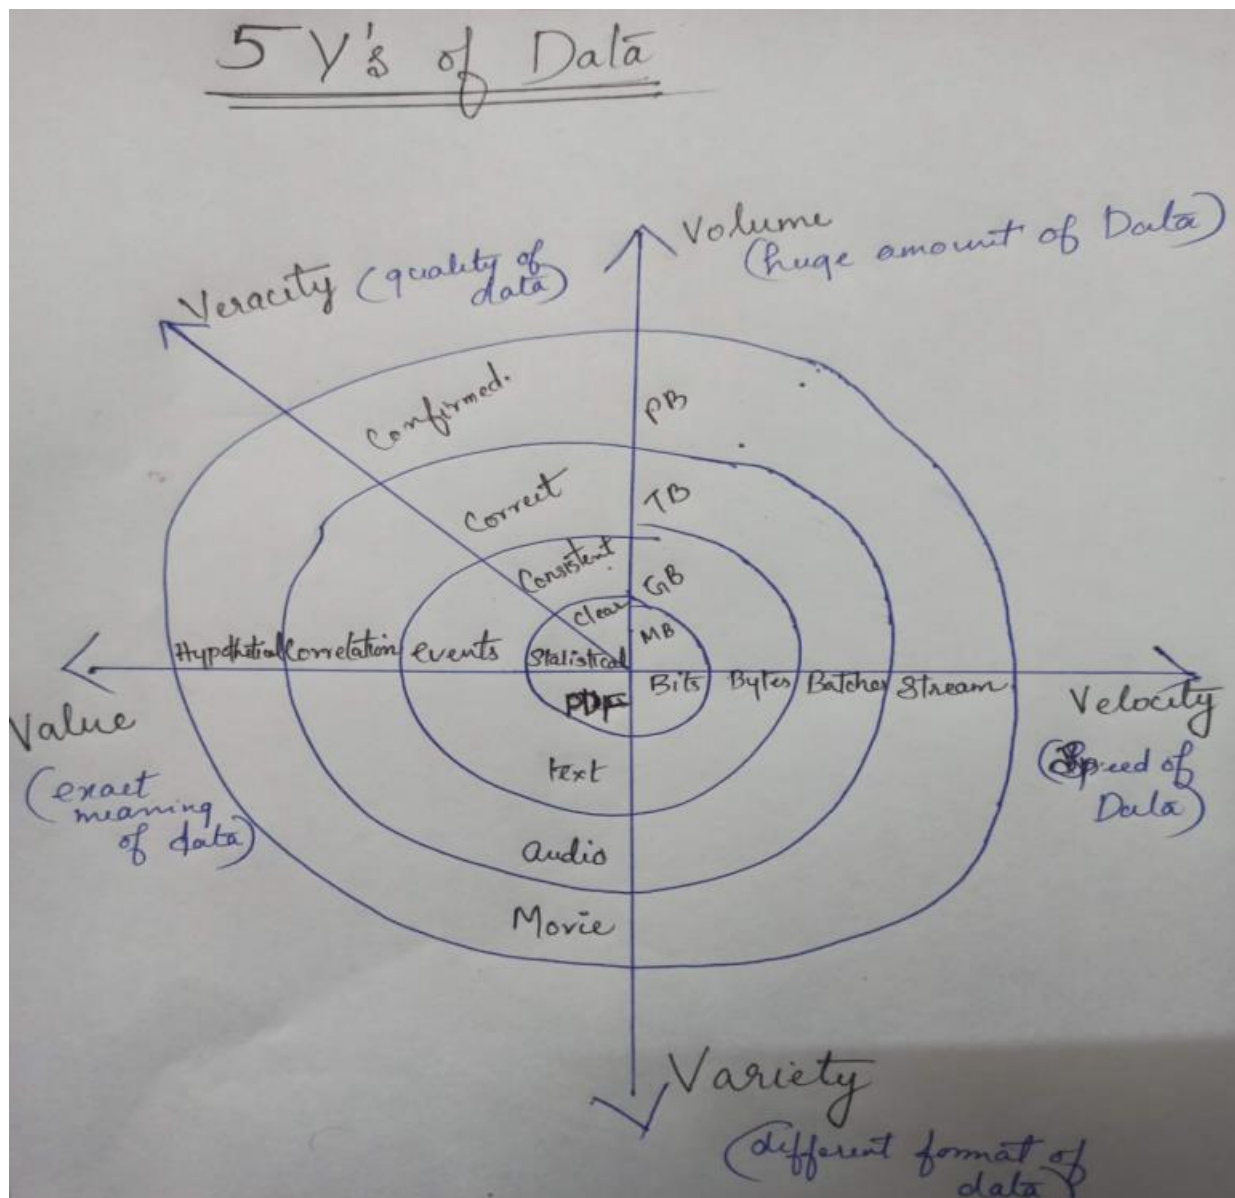 5 V's of Data
Volume
(huge amount of Data)
Veracity (quality of
data)
Confirmed.
PB
Correct
TB
Consistent
GB
Clear
MB
Hypothitical Correlation events Statistical
Bits Bytes Batches Stream
PDF
Value
(exact
meaning
of data)
Velocity
(Speed of
Data)
text
audio
Movie
Variety
(different format of
data)